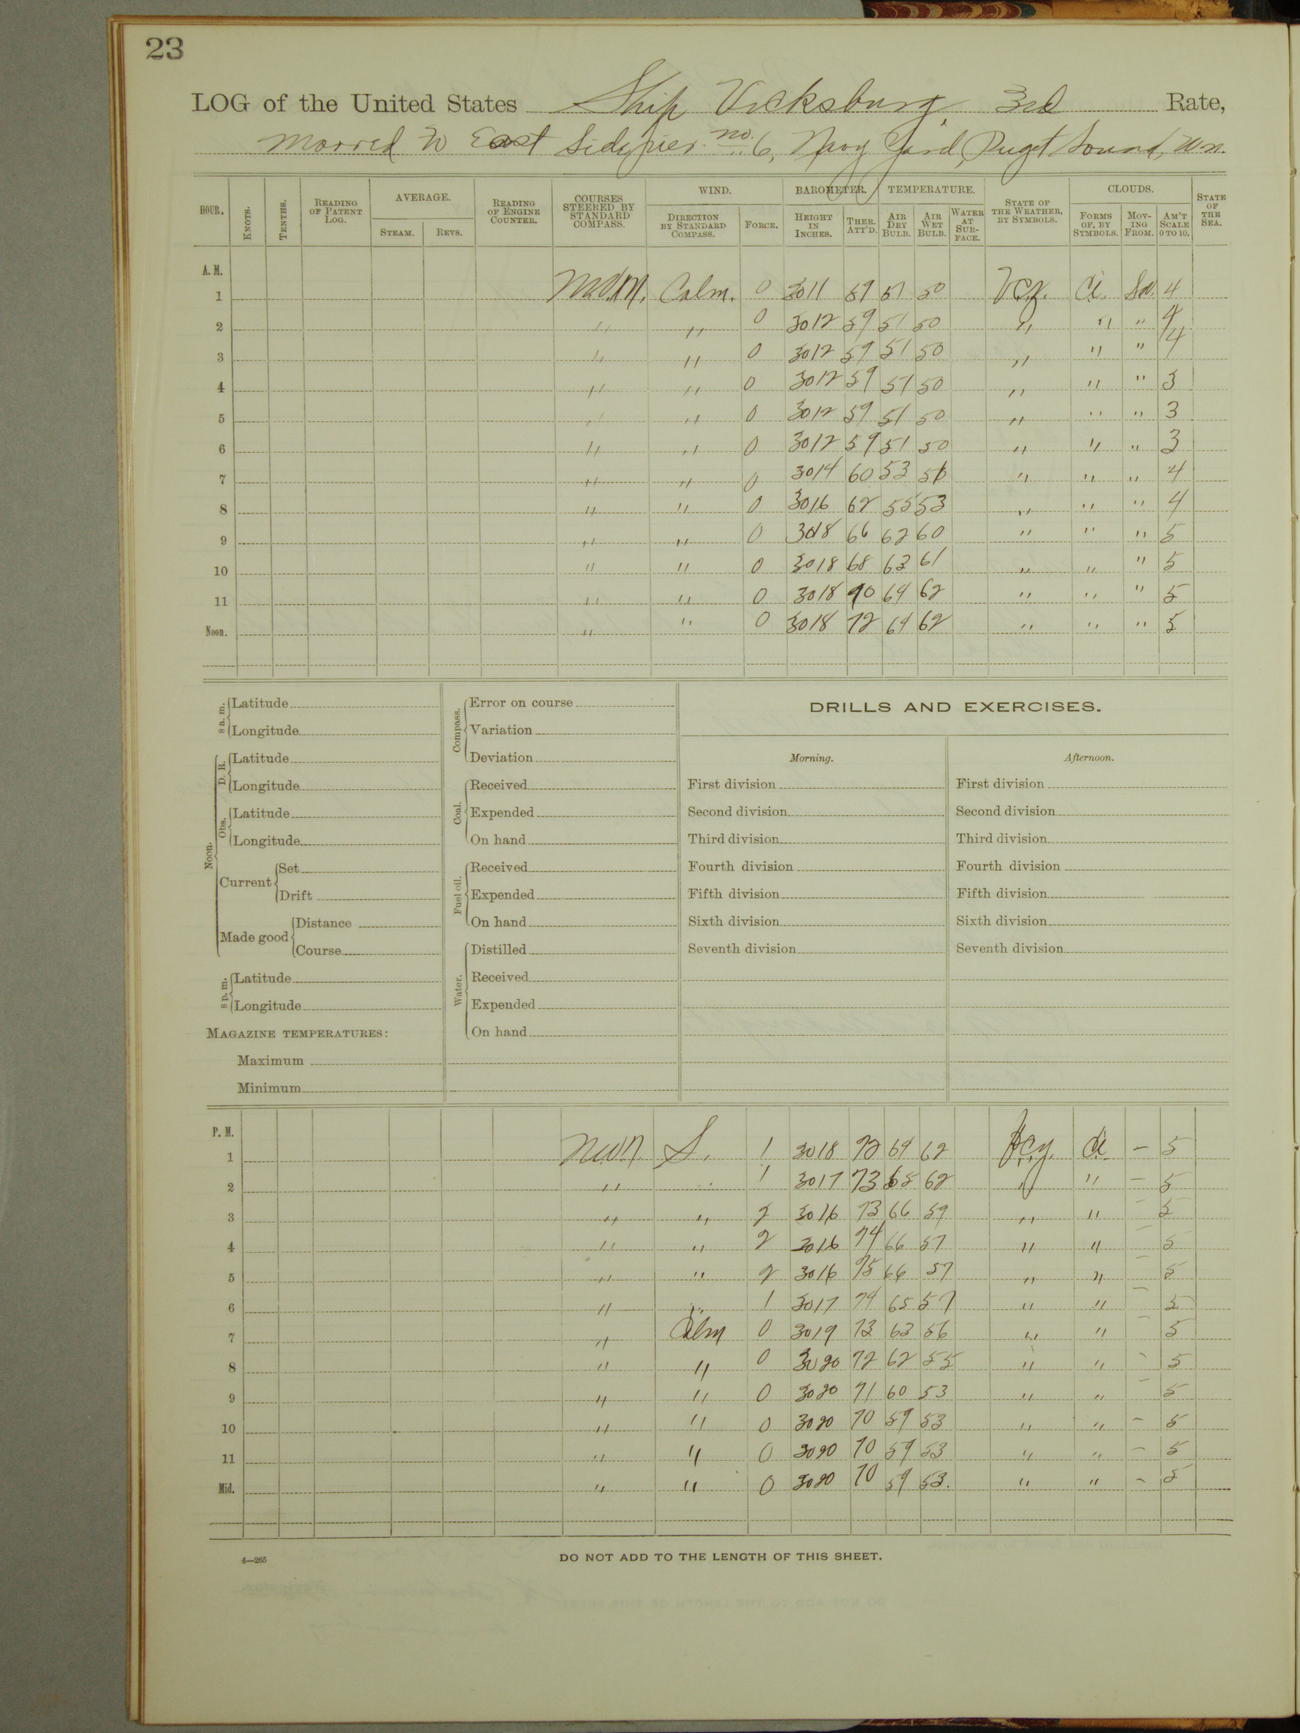 23
LOG of the United States Ship Vicksburg, 3rd Rate,
Moored to East Side, pier no. 6, Navy Yard, Puget Sound, Wn.
HOUR. KNOTS. TENTHS. READING OF PATENT LOG. AVERAGE. STEAM. REVS. READING OF ENGINE COUNTER. COURSES STEERED BY STANDARD COMPASS. WIND. DIRECTION BY STANDARD COMPASS. FORCE. BAROMETER. HEIGHT IN INCHES. THER. ATT'D. TEMPERATURE. AIR DRY BULB. AIR WET BULB. WATER AT SURFACE. STATE OF THE WEATHER, BY SYMBOLS. CLOUDS. FORMS OF, BY SYMBOLS. MOVING FROM. AM'T SCALE 0 TO 10. STATE OF THE SEA.
A. M.
1 Calm. 0 3011 59 51 50 Ci. 4
2 " " 0 3012 59 51 50 " " " 4
3 " " 0 3012 59 51 50 " " " 4
4 " " 0 3012 59 51 50 " " " 3
5 " " 0 3012 59 51 50 " " " 3
6 " " 0 3012 59 51 50 " " " 3
7 " " 0 3014 60 53 51 " " " 4
8 " " 0 3016 62 55 53 " " " 4
9 " " 0 3018 66 62 60 " " " 5
10 " " 0 3018 68 63 61 " " " 5
11 " " 0 3018 70 64 62 " " " 5
Noon. " " 0 3018 72 64 62 " " " 5
8 a. m. Latitude
Longitude
Noon. D. R. Latitude
Longitude
Obs. Latitude
Longitude
Current Set
Drift
Made good Distance
Course
8 p. m. Latitude
Longitude
MAGAZINE TEMPERATURES:
Maximum
Minimum
Compass. Error on course
Variation
Deviation
Coal. Received
Expended
On hand
Fuel oil. Received
Expended
On hand
Water. Distilled
Received
Expended
On hand
DRILLS AND EXERCISES.
Morning. Afternoon.
First division First division
Second division Second division
Third division Third division
Fourth division Fourth division
Fifth division Fifth division
Sixth division Sixth division
Seventh division Seventh division
P. M.
1 S. 1 3018 72 64 62 Ci - 5
2 " " 1 3017 73 65 62 " " - 5
3 " " 2 3016 73 66 59 " " - 5
4 " " 2 3016 74 66 57 " " - 5
5 " " 2 3016 75 66 57 " " - 5
6 " " 1 3017 74 65 57 " " - 5
7 " Calm 0 3019 73 63 56 " " - 5
8 " " 0 3020 72 62 55 " " - 5
9 " " 0 3020 71 60 53 " " - 5
10 " " 0 3020 70 59 53 " " - 5
11 " " 0 3020 70 59 53 " " - 5
Mid. " " 0 3020 70 59 53. " " - 5
4—265
DO NOT ADD TO THE LENGTH OF THIS SHEET.